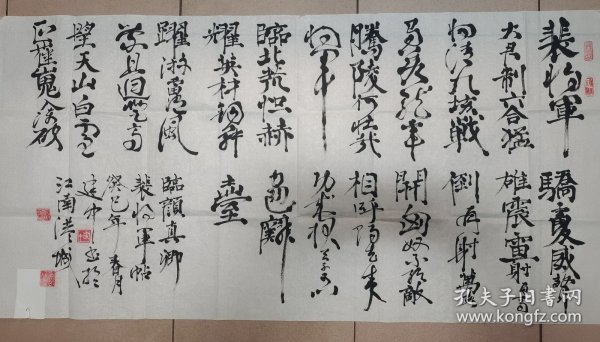 裴将軍
大君制六合猛
将清九垓戰
馬若龍虎
騰陵何壯哉
将軍
臨北荒恒赫
耀英材劍舞
躍游電隨風
縈且回登高
望天山白雲
正崔嵬入陣破
驕虜威聲
雄震雷一射百馬
倒再射萬夫
開匈奴不敢敵
相呼歸去來
功成報天子可以
畫麟
臺
臨顏真卿
裴将軍帖
癸巳年春月
建中書於
江南
孔夫子旧书网
www.kongfz.com